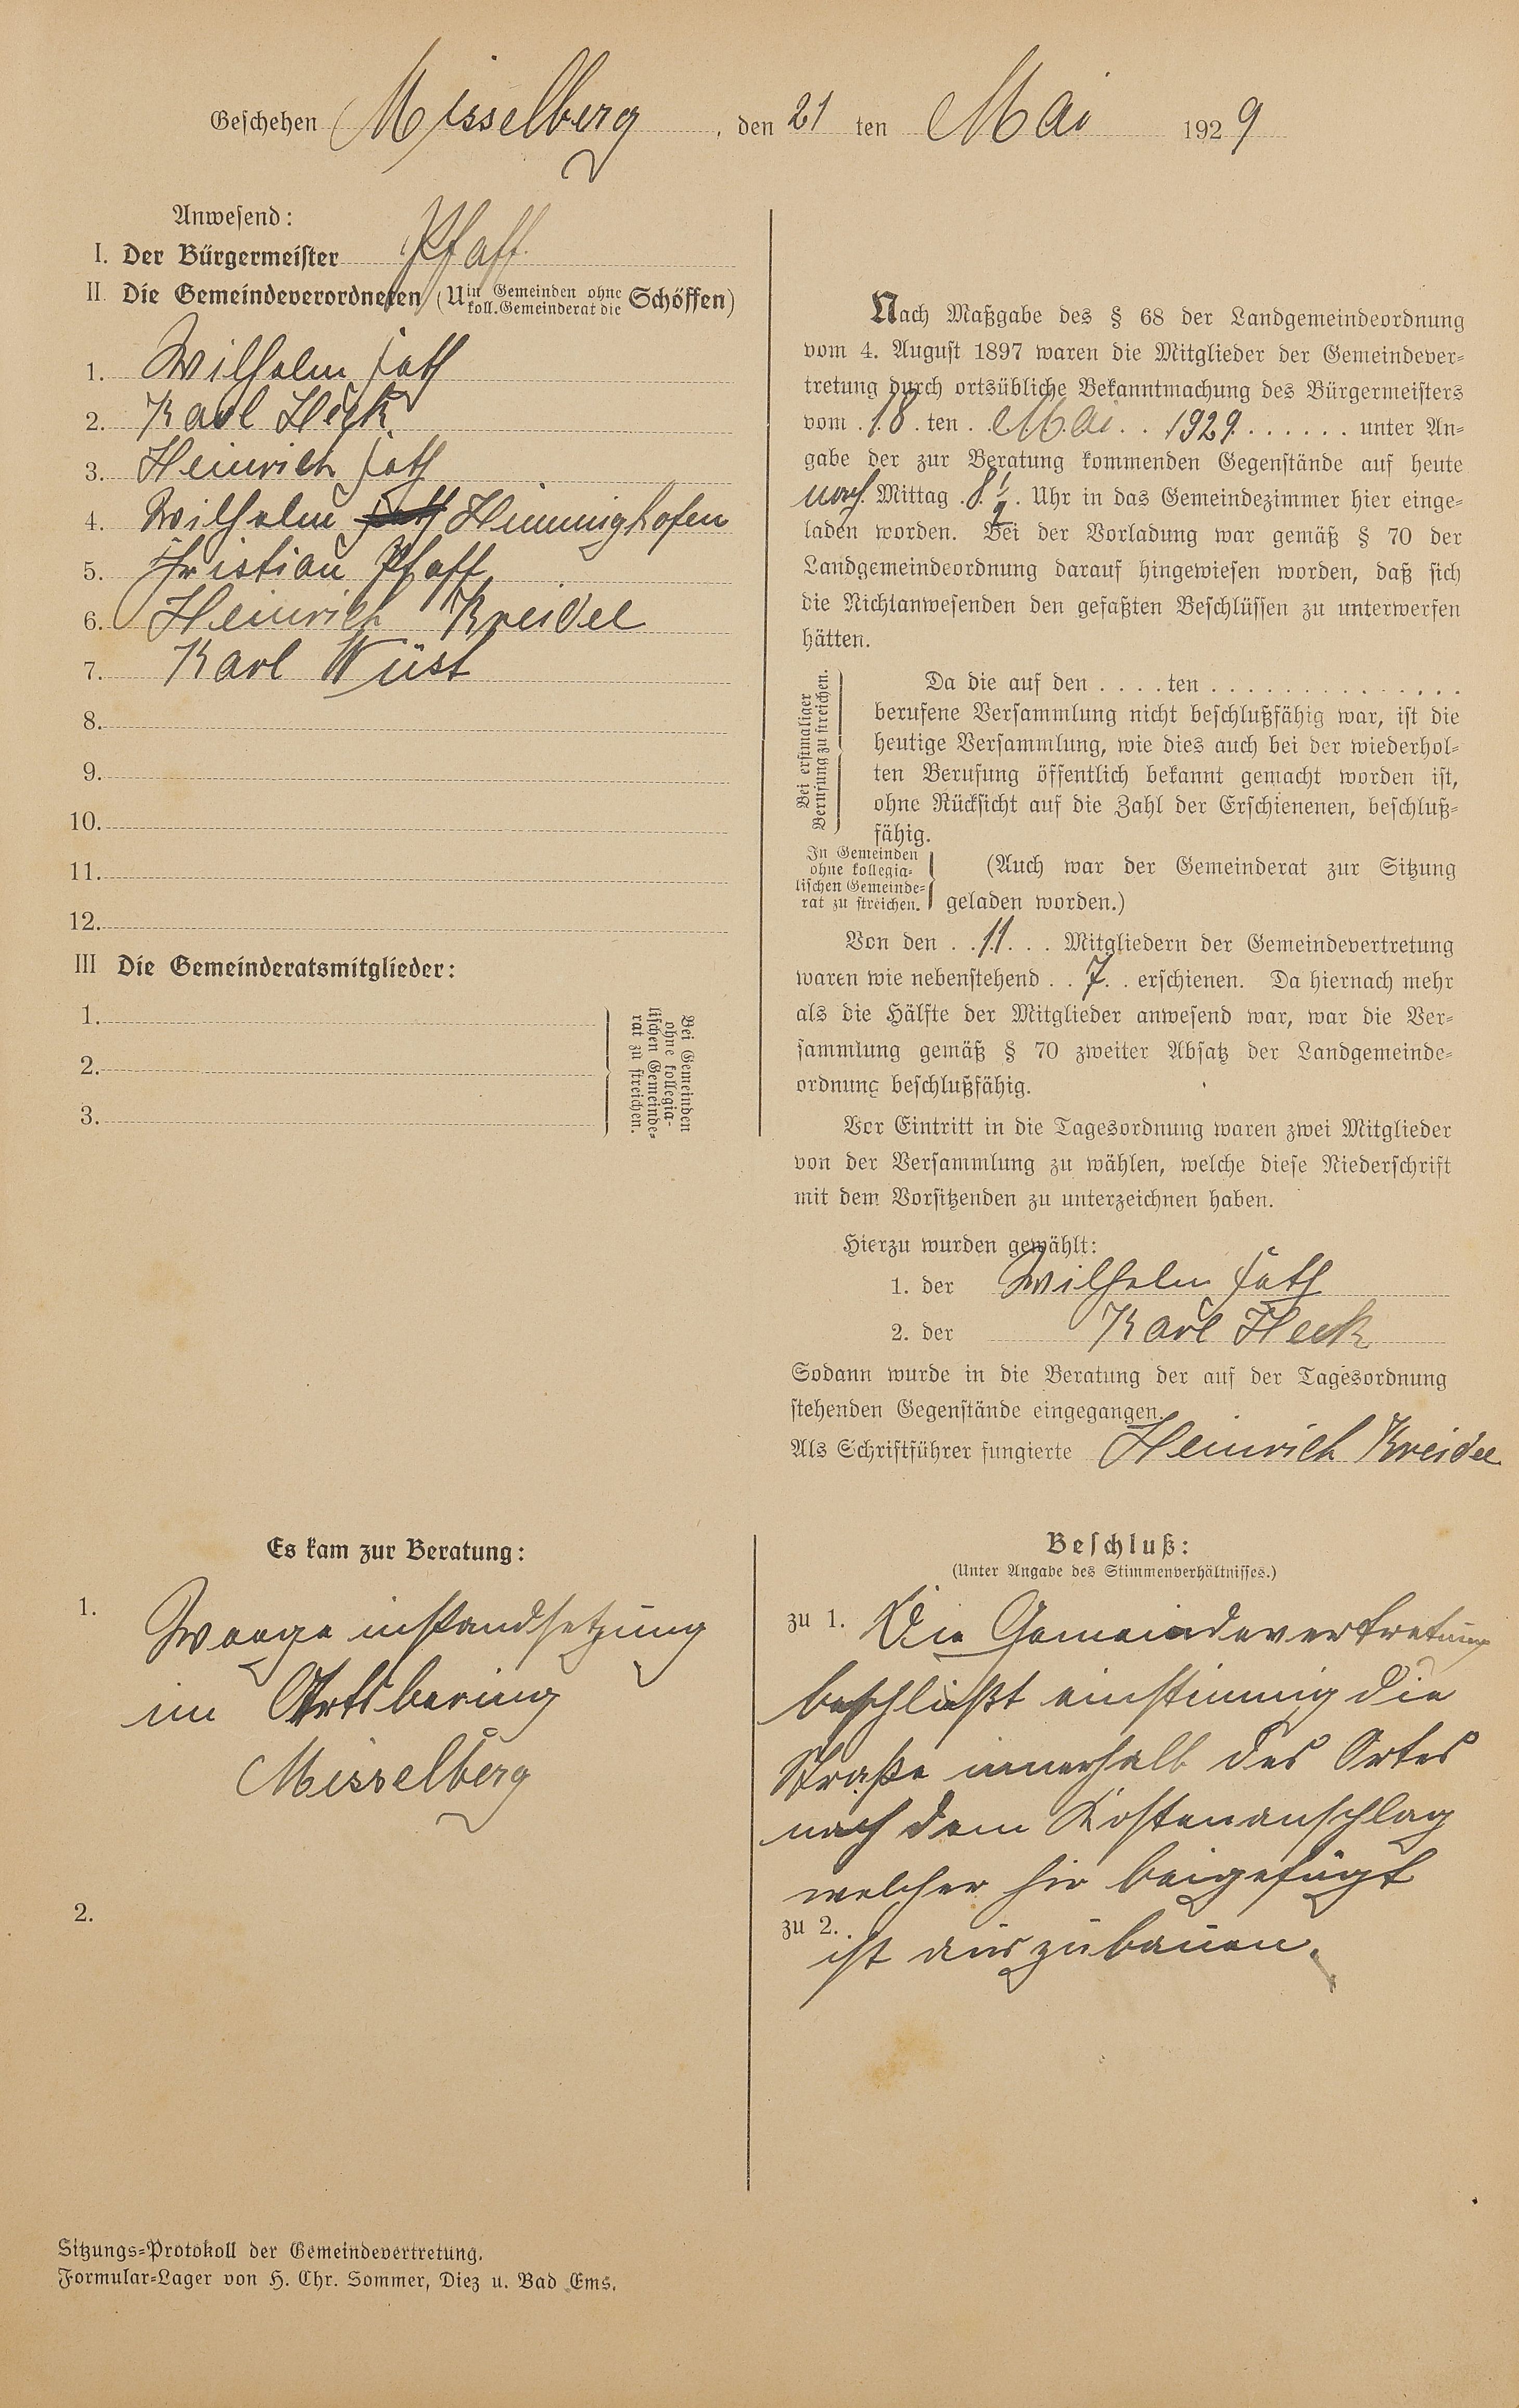 Geschehen Misselberg, den 21 ten Mai 1929
Anwesend:
I. Der Bürgermeister Pfaff
II. Die Gemeindeverordneten (U in Gemeinden ohne koll. Gemeinderat die Schöffen)
1. Wilhelm Fath
2. Karl Heck
3. Heinrich Fath
4. Wilhelm Himmighofen
5. Christian Pfaff
6. Heinrich Kreidel
7. Karl Wüst
8.
9.
10.
11.
12.
III Die Gemeinderatsmitglieder:
1.
2.
3.
Bei Gemeinden
ohne kollegia-
lischen Gemeinde-
rat zu streichen.
Nach Maßgabe des § 68 der Landgemeindeordnung
vom 4. August 1897 waren die Mitglieder der Gemeindever-
tretung durch ortsübliche Bekanntmachung des Bürgermeisters
vom . 18 . ten . . Mai . . 1929 . . . . . . unter An-
gabe der zur Beratung kommenden Gegenstände auf heute
nach. Mittag . 8 1/2 . Uhr in das Gemeindezimmer hier einge-
laden worden. Bei der Vorladung war gemäß § 70 der
Landgemeindeordnung darauf hingewiesen worden, daß sich
die Nichtanwesenden den gefaßten Beschlüssen zu unterwerfen
hätten.
Bei erstmaliger
Berufung zu streichen.
Da die auf den . . . . ten . . . . . . . . . . . . . .
berufene Versammlung nicht beschlußfähig war, ist die
heutige Versammlung, wie dies auch bei der wiederhol-
ten Berufung öffentlich bekannt gemacht worden ist,
ohne Rücksicht auf die Zahl der Erschienenen, beschluß-
fähig.
In Gemeinden
ohne kollegia-
lischen Gemeinde-
rat zu streichen.
(Auch war der Gemeinderat zur Sitzung
geladen worden.)
Von den . . 11 . . . Mitgliedern der Gemeindevertretung
waren wie nebenstehend . . 7 . . erschienen. Da hiernach mehr
als die Hälfte der Mitglieder anwesend war, war die Ver-
sammlung gemäß § 70 zweiter Absatz der Landgemeinde-
ordnung beschlußfähig.
Vor Eintritt in die Tagesordnung waren zwei Mitglieder
von der Versammlung zu wählen, welche diese Niederschrift
mit dem Vorsitzenden zu unterzeichnen haben.
Hierzu wurden gewählt:
1. der Wilhelm Fath
2. der Karl Heck
Sodann wurde in die Beratung der auf der Tagesordnung
stehenden Gegenstände eingegangen.
Als Schriftführer fungierte Heinrich Kreidel
Es kam zur Beratung:
1. instandsetzung
im Ortsbering
Misselberg
2.
Beschluß:
(Unter Angabe des Stimmenverhältnisses.)
zu 1. Die Gemeindevertretung
beschließt einstimmig die
Straße innerhalb des Ortes
nach dem Kostenanschlag
welcher hir beigefügt
zu 2.
ist auszubauen.
Sitzungs-Protokoll der Gemeindevertretung.
Formular-Lager von H. Chr. Sommer, Diez u. Bad Ems.